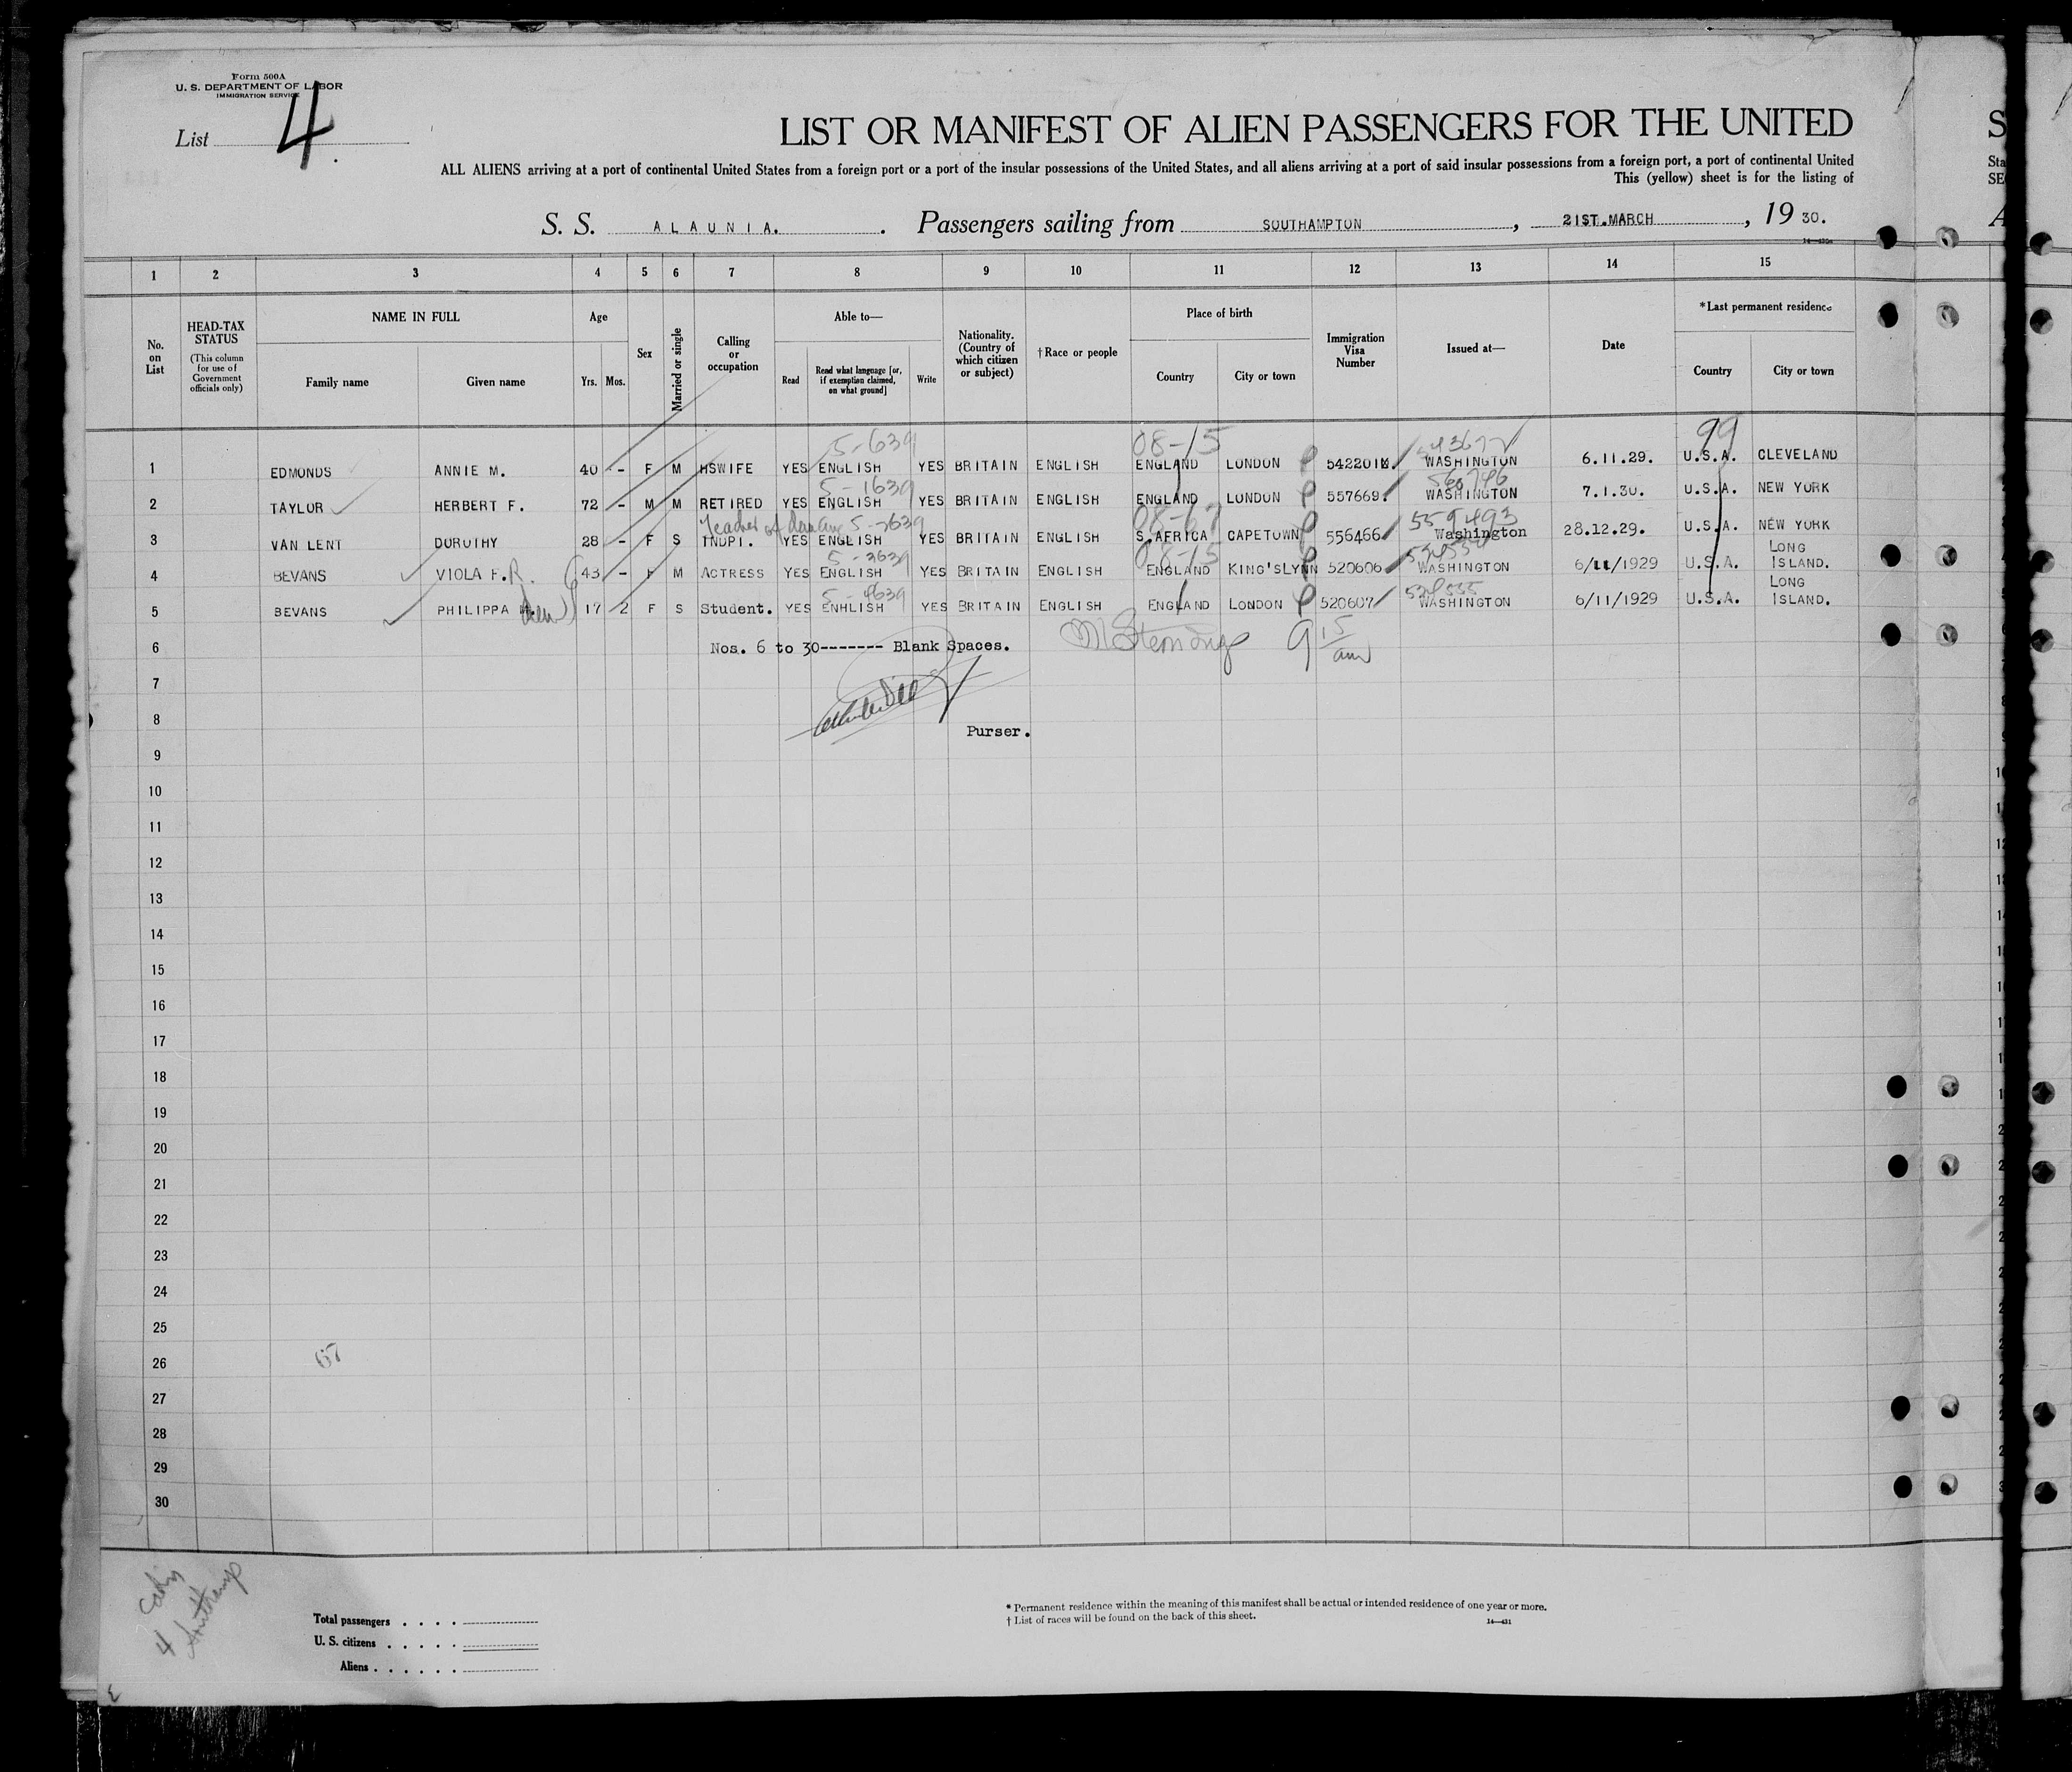 Form 500A
U. S. DEPARTMENT OF LABOR
IMMIGRATION SERVICE
List 4
LIST OR MANIFEST OF ALIEN PASSENGERS FOR THE UNITED
ALL ALIENS arriving at a port of continental United States from a foreign port or a port of the insular possessions of the United States, and all aliens arriving at a port of said insular possessions from a foreign port, a port of continental United
This (yellow) sheet is for the listing of
S. S. ALAUNIA. . Passengers sailing from SOUTHAMPTON , 21ST.MARCH , 19 30.
1 2 3 4 5 6 7 8 9 10 11 12 13 14 15
No. on List
HEAD-TAX STATUS (This column for use of Government officials only)
NAME IN FULL
Family name Given name
Age
Yrs. Mos.
Sex
Married or single
Calling or occupation
Able to—
Read Read what language [or, if exemption claimed, on what ground] Write
Nationality. (Country of which citizen or subject)
† Race or people
Place of birth
Country City or town
Immigration Visa Number
Issued at—
Date
*Last permanent residence
Country City or town
5-639 08-15 99
1 EDMONDS ANNIE M. 40 - F M HSWIFE YES ENGLISH YES BRITAIN ENGLISH ENGLAND LONDON WASHINGTON 6.11.29. U.S.A. CLEVELAND
5-1639 560746
2 TAYLOR HERBERT F. 72 - M M RETIRED YES ENGLISH YES BRITAIN ENGLISH ENGLAND LONDON 557669. WASHINGTON 7.1.30. U.S.A. NEW YORK
Teacher of 5-2639 08-67 559493
3 VAN LENT DOROTHY 28 - F S YES ENGLISH YES BRITAIN ENGLISH S.AFRICA CAPETOWN 556466 Washington 28.12.29. U.S.A. NEW YORK
5-3639 08-15
4 BEVANS VIOLA F. R. 43 - F M ACTRESS YES ENGLISH YES BRITAIN ENGLISH ENGLAND KING'SLYNN 520606 WASHINGTON 6/11/1929 U.S.A. LONG ISLAND.
5-4639
5 BEVANS PHILIPPA 17 2 F S Student. YES ENHLISH YES BRITAIN ENGLISH ENGLAND LONDON 520607 WASHINGTON 6/11/1929 U.S.A. LONG ISLAND.
6 Nos. 6 to 30------- Blank Spaces. 9 15 am
7
8 Purser.
9
10
11
12
13
14
15
16
17
18
19
20
21
22
23
24
25
26 67
27
28
29
30
4
Total passengers . . . .
U. S. citizens . . . . .
Aliens . . . . . .
* Permanent residence within the meaning of this manifest shall be actual or intended residence of one year or more.
† List of races will be found on the back of this sheet.
14—431